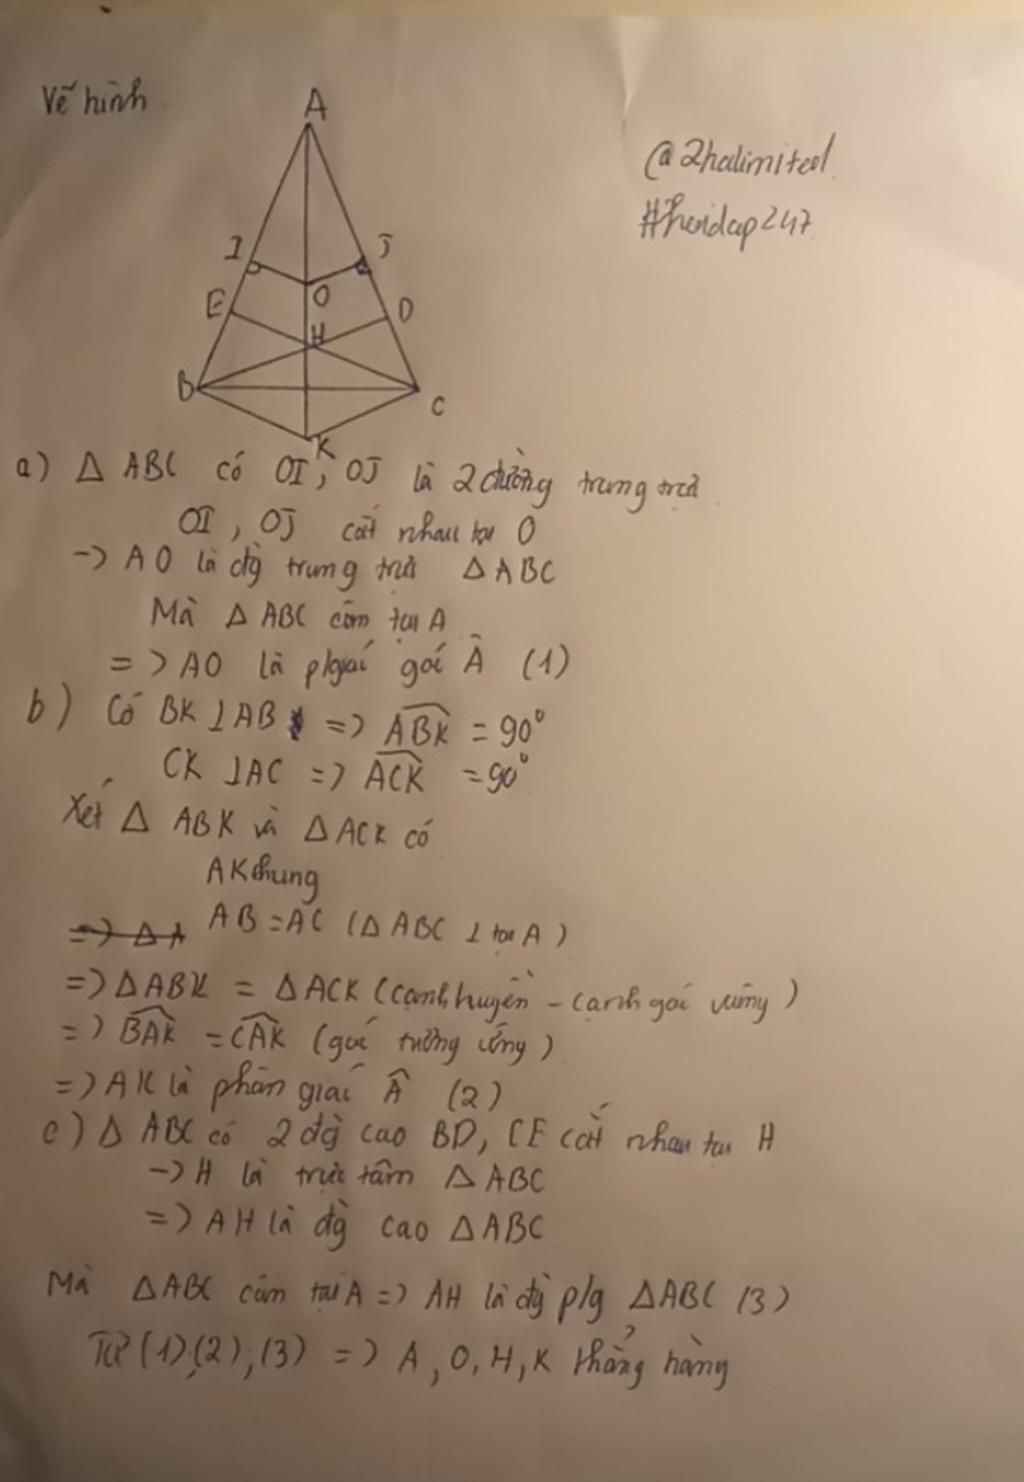 Vẽ hình
A
@2halimited
#hoidap247
I
J
O
E
D
H
B
C
K
a) Δ ABC có OI, OJ là 2 đường trung trực
OI, OJ cắt nhau tại O
-> AO là đg trung trực Δ ABC
Mà Δ ABC cân tại A
=> AO là p/giác góc Â (1)
b) Có BK ⊥ AB => ABK = 90°
CK ⊥ AC => ACK = 90°
Xét Δ ABK và Δ ACK có
AK chung
AB = AC (Δ ABC ⊥ tại A)
=> Δ A
=> Δ ABK = Δ ACK (cạnh huyền - cạnh góc vuông)
=> BAK = CAK (góc tương ứng)
=> AK là phân giác Â (2)
c) Δ ABC có 2 đg cao BD, CE cắt nhau tại H
-> H là trực tâm Δ ABC
=> AH là đg cao Δ ABC
Mà Δ ABC cân tại A => AH là đg p/g Δ ABC (3)
Từ (1), (2), (3) => A, O, H, K thẳng hàng